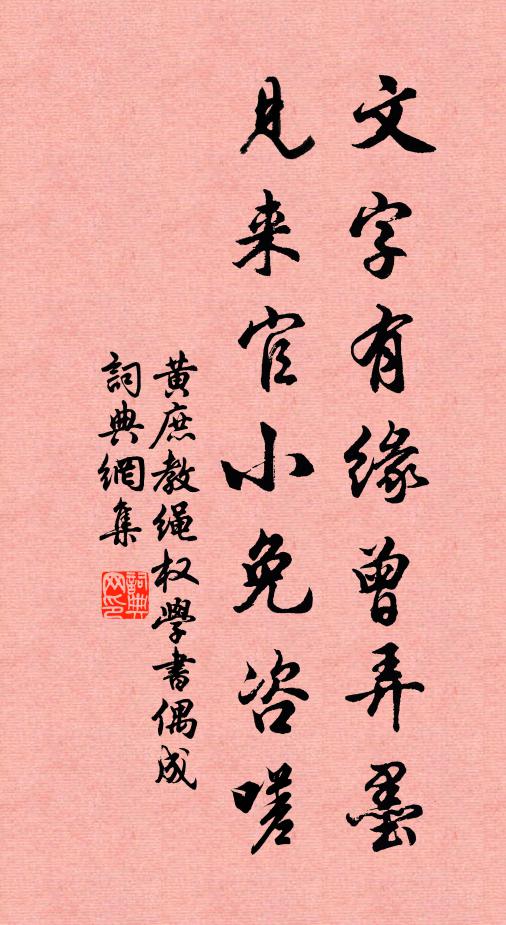 文字有缘曾弄墨
見来官小免咨嗟
黄庶教绳权學書偶成
詞典網集
詞典网印